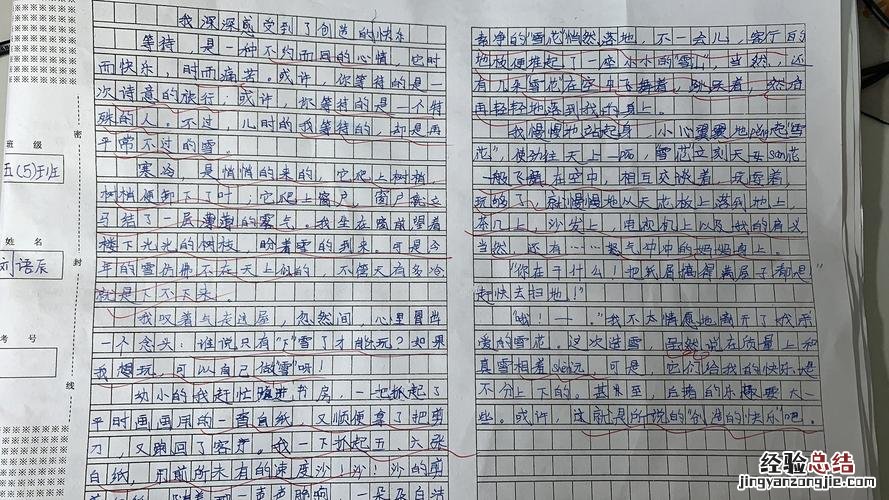 我深深感受到了创造的快乐
等待，是一种不约而同的心情，它时
而快乐，时而痛苦。或许，你等待的是一
次诗意的旅行；或许，你等待的是一个特
殊的人。不过，儿时的我等待的，却是再
平常不过的雪。
寒冷，是悄悄的来的，它爬上树梢，
树梢便卸下了叶；它爬上窗户，窗户就立
马结了一层薄薄的雾气。我坐在窗前望着
楼下光光的树枝，盼着雪的到来，可是今
年的雪仿佛不在天上似的，不管天有多冷
就是下不下来。
我叹着气走进屋，忽然间，心里冒出
一个念头：谁说只有"下"雪了才能玩？如果
我想玩，可以自己"做雪"呀！
幼小的我赶忙跑进书房，一把抓起了
平时画画用的一沓白纸，又顺便拿了把剪
刀，又跑回了客厅。我一下抓起五、六张
白纸，用前所未有的速度沙！沙！沙的剪
班级
五(5)班
姓名
刘语辰
考号
密
封
线
干净的"雪花"悄然落地，不一会儿，客厅的
地板便堆起了一座小小的"雪山"，当然，还
有几朵"雪花"在空中飞舞着，跳跃着，然后
再轻轻地落到我的身上。
我慢慢地站起身，小心翼翼地peng起"雪
花"，使劲往天上一po，"雪花"立刻天女san花
一般飞舞在空中，相互交谈着，玩耍着，
玩够了，就慢慢地从天花板上落到地上，
茶几上，沙发上，电视机上以及我的肩上
当然，还有……怒气冲冲的妈妈身上。
"你在干什么！把纸屑搞得满屋子都是"
赶快去扫地！"
"哦！一一"我不太情愿地离开了我亲
爱的雪花。这次造雪，虽然说在质量上和
真雪相差sen远，可是，它们给我的快乐是
不分上下的。甚至，自造的乐趣要大一
些。或许，这就是所说的"创造的快乐"吧。
经验总结
jingyanzongjie.com